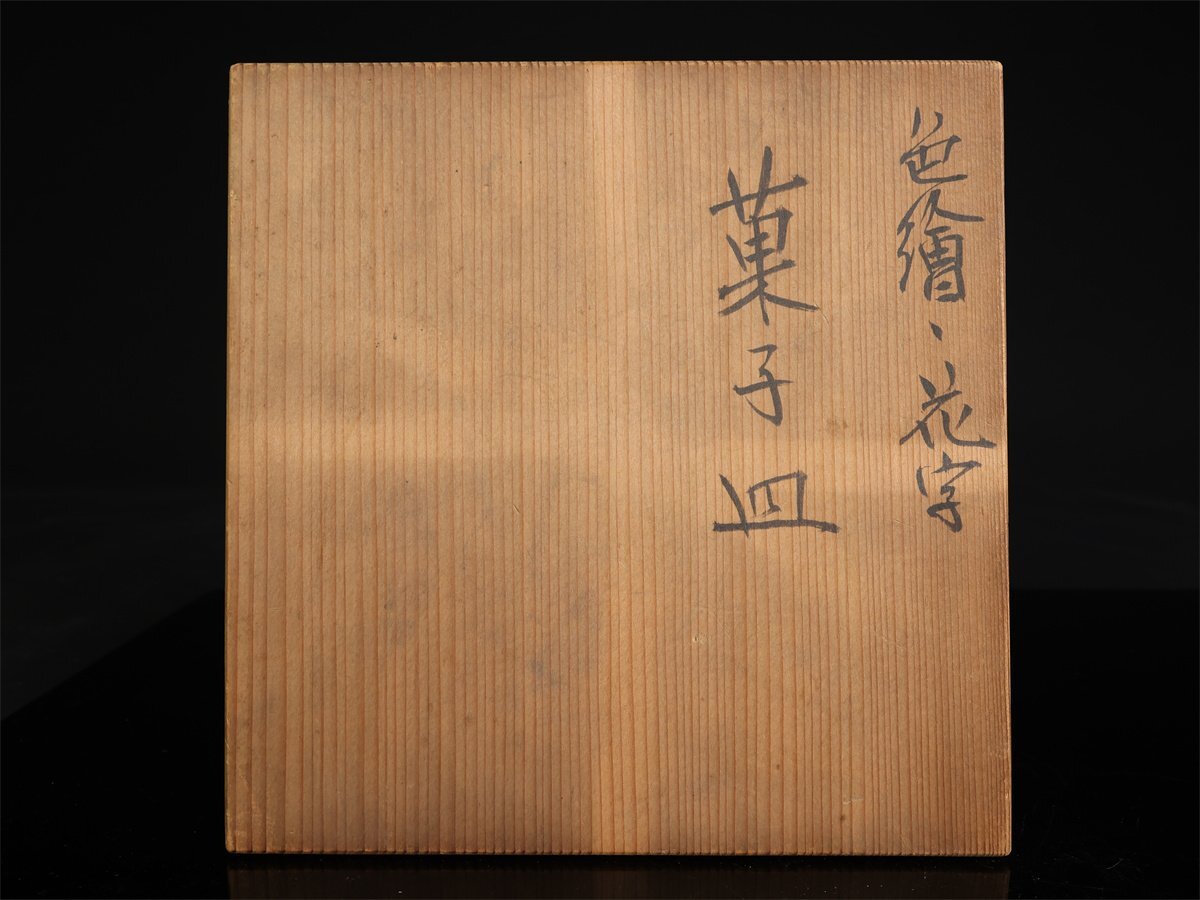 色繪、花字
菓子皿